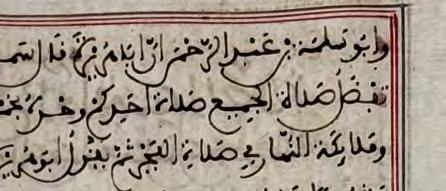 وابو سلمة بن عبد الرحمن ان ابا هريرة قال سمـ
تفضل صلاة الجميع صلاة احدكم وحده بخمـ
وملائكة النهار في صلاة الفجر ثم يقول ابو هريـ